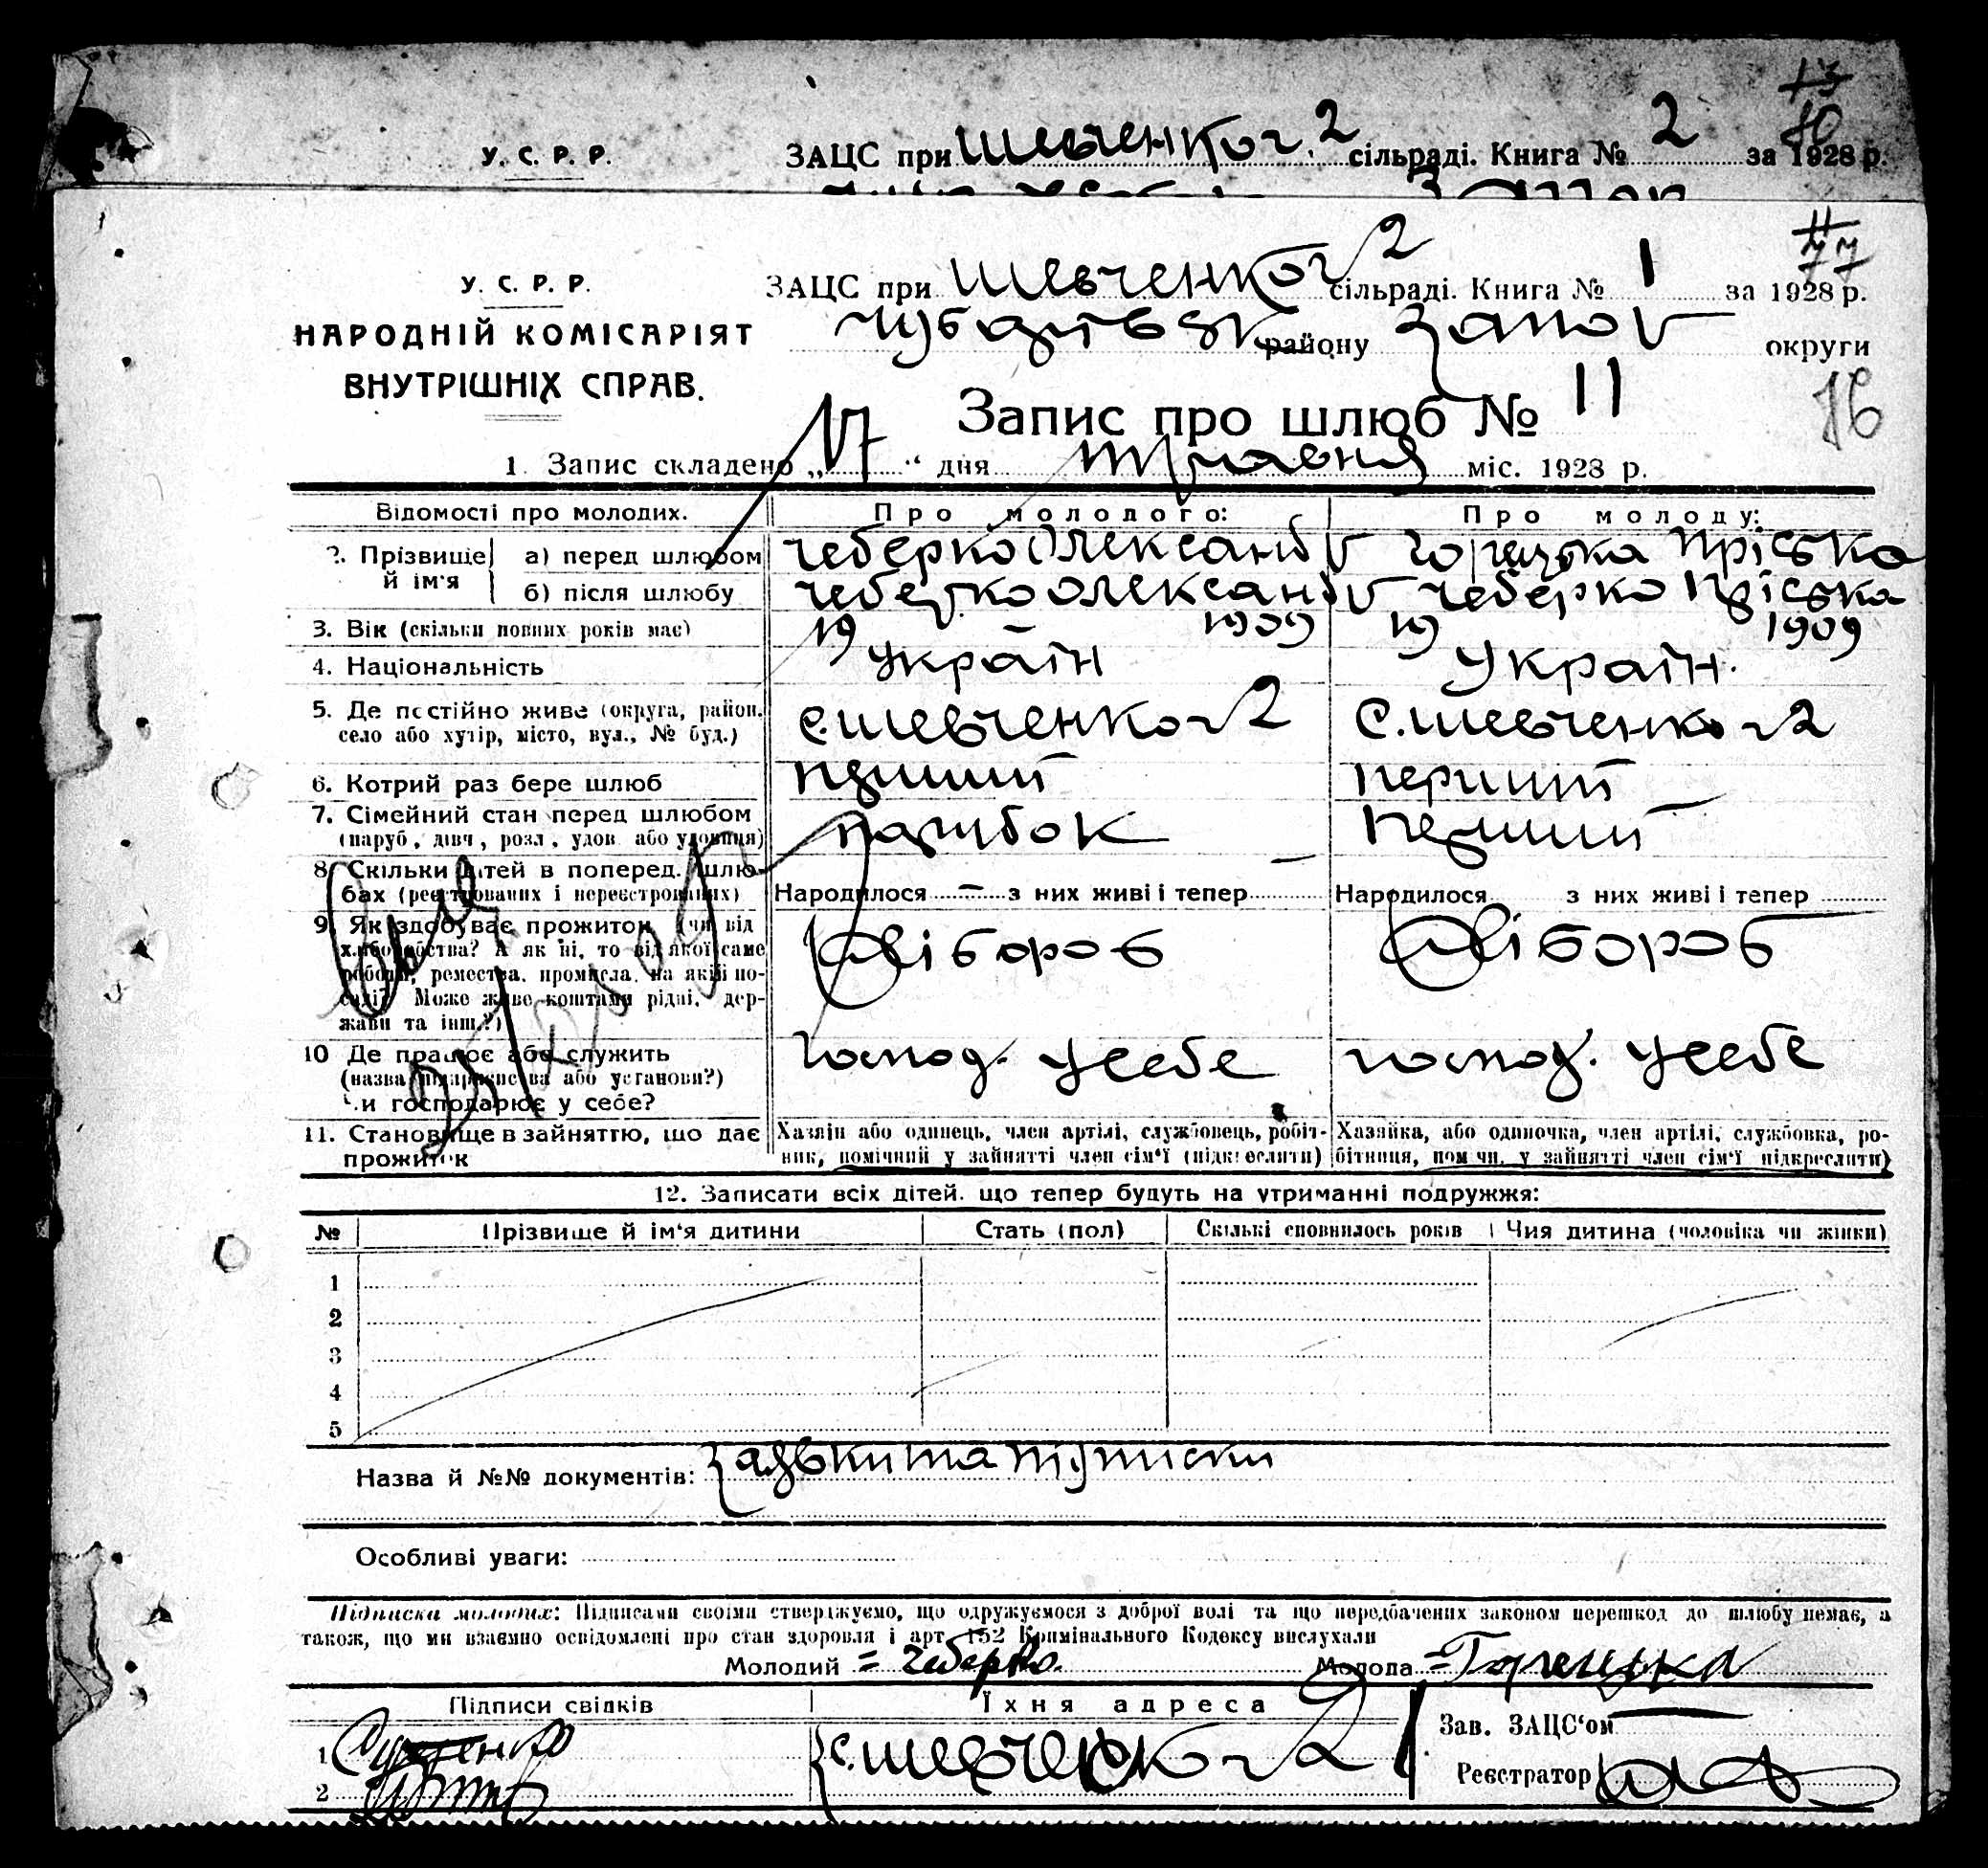 13
80
У. С. Р. Р. ЗАЦС при Шевченког. 2 сільраді. Книга № 2 за 1928 р.
11
77
У. С. Р. Р. ЗАЦС при Шевченког 2 сільраді. Книга № 1 за 1928 р.
НАРОДНІЙ КОМІСАРІЯТ району Запор округи
ВНУТРІШНІХ СПРАВ.
Запис про шлюб № 11
76
1. Запис складено „17“ дня травня міс. 1928 р.
Відомості про молодих. Про молодого: Про молоду:
2. Прізвище й ім'я а) перед шлюбом Чеберко Олександр Горецька Пріська
б) після шлюбу Чеберко Олександр Чеберко Пріська
3. Вік (скільки повних років має) 19 1909 19 1909
4. Національність Україн Україн.
5. Де постійно живе (округа, район, село або хутір, місто, вул., № буд.) с. Шевченко г 2 с. Шевченко г 2
6. Котрий раз бере шлюб перший перший
7. Сімейний стан перед шлюбом (паруб., дівч., розл., удов. або удовиця) парубок перший
8. Скільки дітей в поперед. шлюбах (реєстрованих і нереєстрованих) Народилося — з них живі і тепер Народилося з них живі і тепер
9. Як здобуває прожиток (чи від хліборобства? А як ні, то від якої саме роботи, ремества, промисла, на якій посаді? Може живе коштами рідні, держави та інш.?) хлібороб хлібороб
10 Де працює або служить (назва підприємства або установи?) Чи господарює у себе? господ. у себе господ. у себе
11. Становище в зайняттю, що дає прожиток Хазяїн або одинець, член артілі, службовець, робітник, помічний у зайнятті член сім'ї (підкреслити) Хазяйка, або одиночка, член артілі, службовка, робітниця, помічн. у зайнятті член сім'ї підкреслити)
12. Записати всіх дітей, що тепер будуть на утриманні подружжя:
№ Прізвище й ім'я дитини Стать (пол) Скількі сповнилось років Чия дитина (чоловіка чи жінки)
1
2
3
4
5
Назва й №№ документів: заявки та підписки
Особливі уваги:
Підписка молодих: Підписами своїми стверджуємо, що одружуємося з доброї волі та що передбачених законом перешкод до шлюбу немає, а
також, що ми взаємно освідомлені про стан здоровля і арт. 152 Кримінального Кодексу вислухали
Молодий = Чеберко. Молода = Горецька
Підписи свідків Їхня адреса Зав. ЗАЦС'ом
1 с. Шевченко г 2
2 Реєстратор